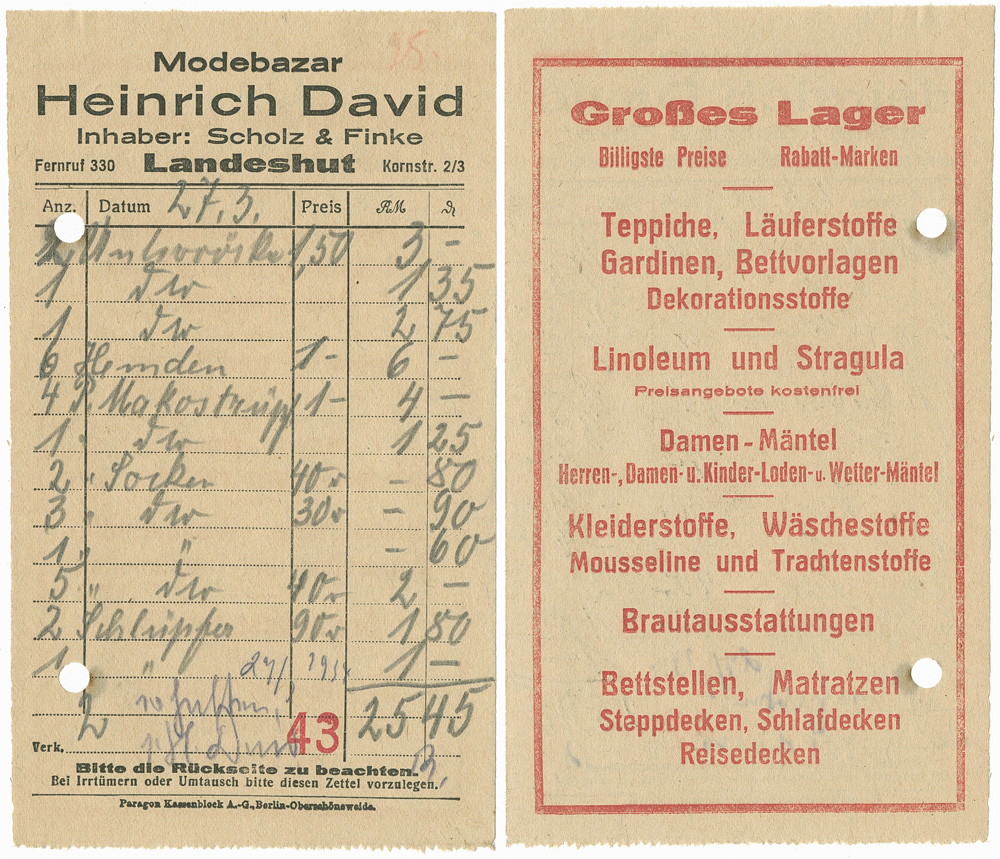 95.
Modebazar
Heinrich David
Inhaber: Scholz & Finke
Fernruf 330 Landeshut Kornstr. 2/3
Anz. Datum 27.3. Preis RM ₰
2 Unterröcke 1,50 3 –
1 dto 1 35
1 dto 2 75
6 Hemden 1– 6 –
4 P. Makostrümpf 1– 4 –
1 " dto 1 25
2 " Socken 40 – 80
3 " dto 30 – 90
1 " " – 60
5 " dto 40 2 –
2 Schlüpfer 90 1 80
1 " 1 –
27/
25 45
2
43
Verk.
Bitte die Rückseite zu beachten.
Bei Irrtümern oder Umtausch bitte diesen Zettel vorzulegen.
Paragon Kassenblock A.-G., Berlin-Oberschönweide.
Großes Lager
Billigste Preise Rabatt-Marken
Teppiche, Läuferstoffe
Gardinen, Bettvorlagen
Dekorationsstoffe
Linoleum und Stragula
Preisangebote kostenfrei
Damen-Mäntel
Herren-, Damen- u. Kinder-Loden- u. Wetter-Mäntel
Kleiderstoffe, Wäschestoffe
Mousseline und Trachtenstoffe
Brautausstattungen
Bettstellen, Matratzen
Steppdecken, Schlafdecken
Reisedecken